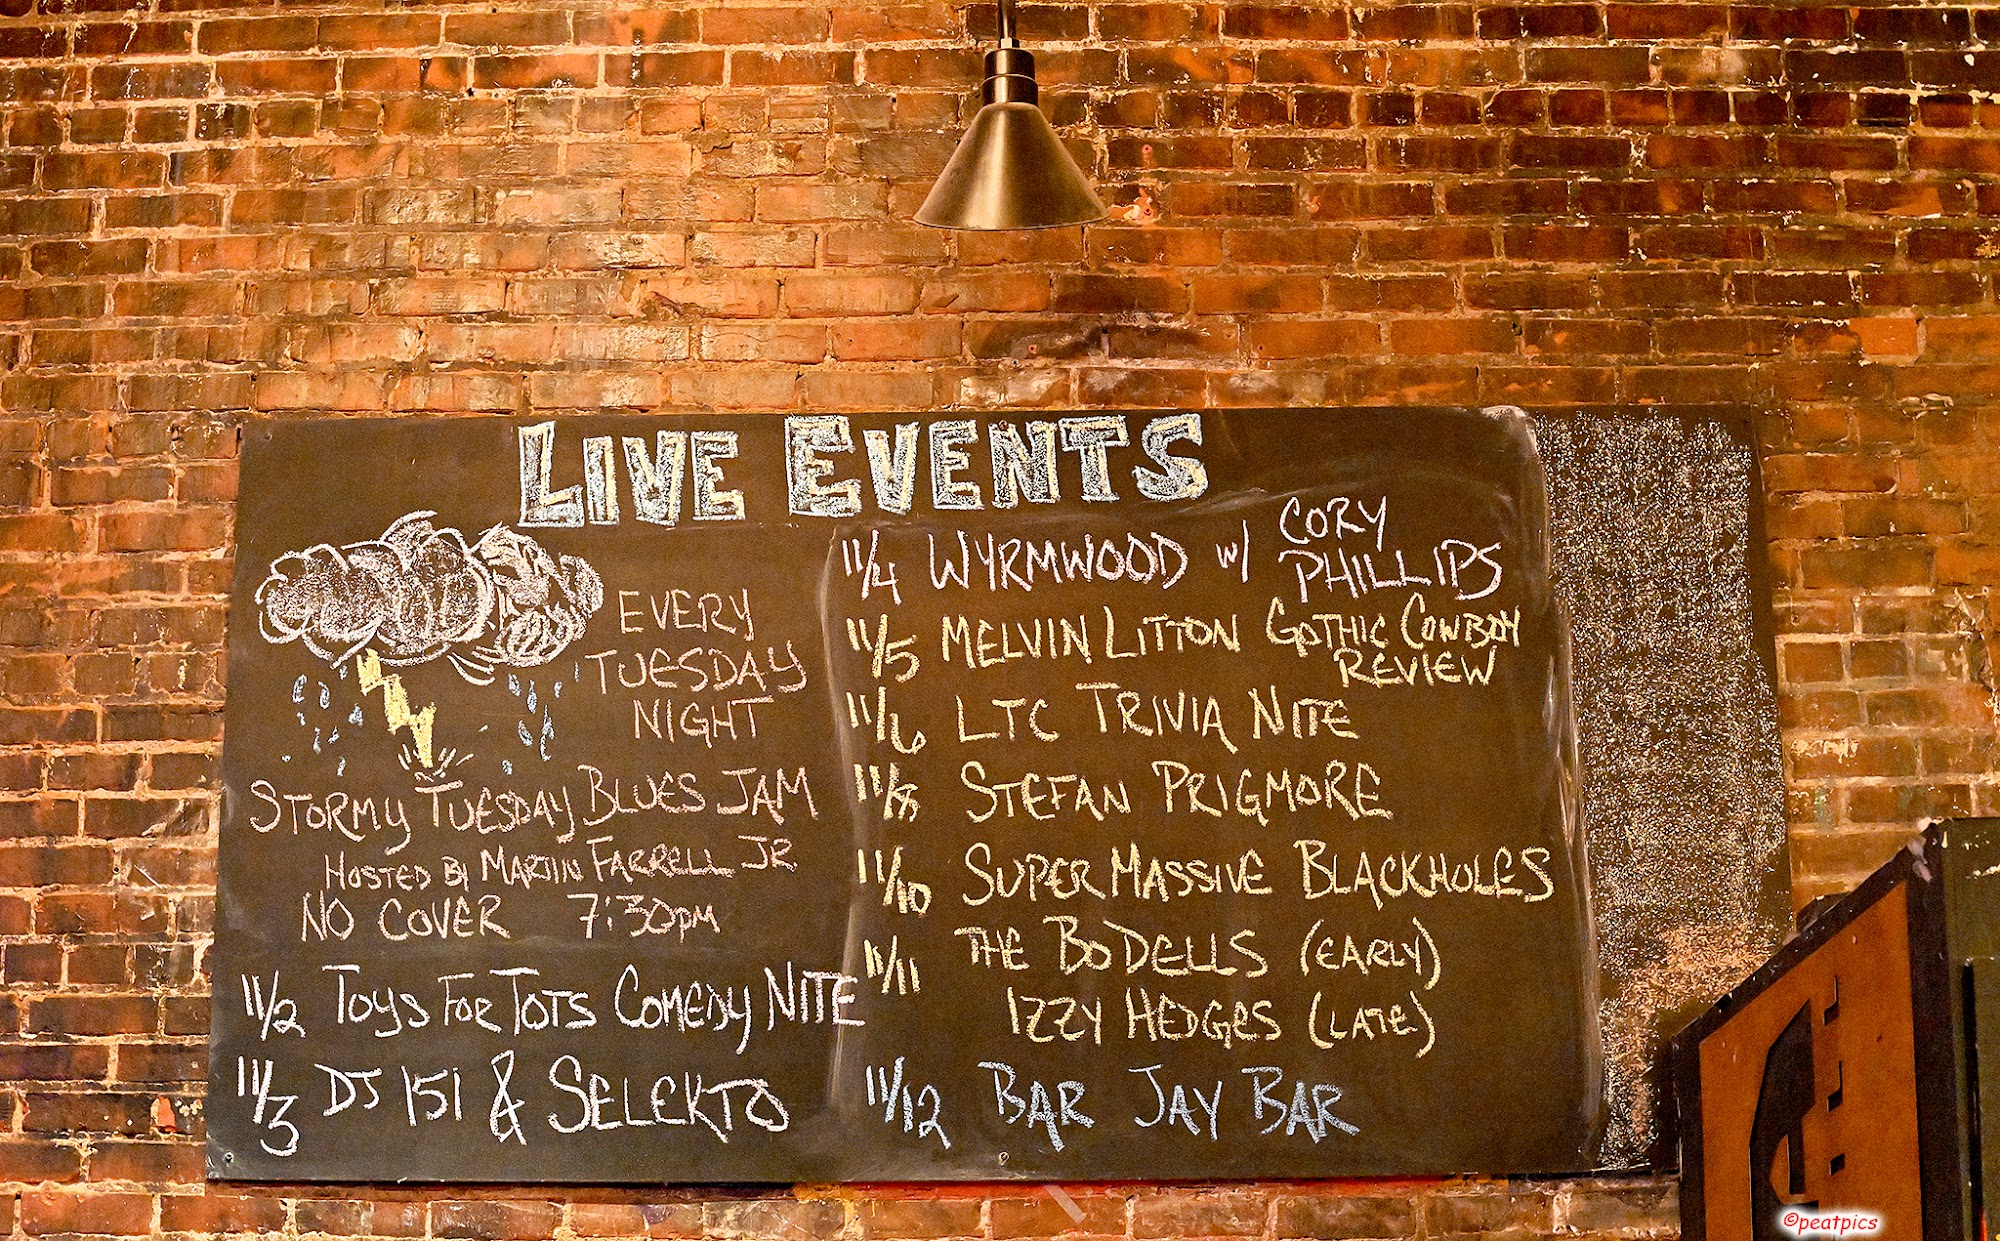 LIVE EVENTS
EVERY
TUESDAY
NIGHT
STORMY TUESDAY BLUES JAM
HOSTED BY MARTIN FARRELL JR
NO COVER 7:30PM
11/2 TOYS FOR TOTS COMEDY NITE
11/3 DJ 151 & SELEKTO
11/4 WYRMWOOD W/ CORY
PHILLIPS
11/5 MELVIN LITTON GOTHIC COWBOY
REVIEW
11/6 LTC TRIVIA NITE
11/8 STEFAN PRIGMORE
11/10 SUPER MASSIVE BLACKHOLES
11/11 THE BODELLS (EARLY)
IZZY HEDGES (LATE)
11/12 BAR JAY BAR
©peatpics